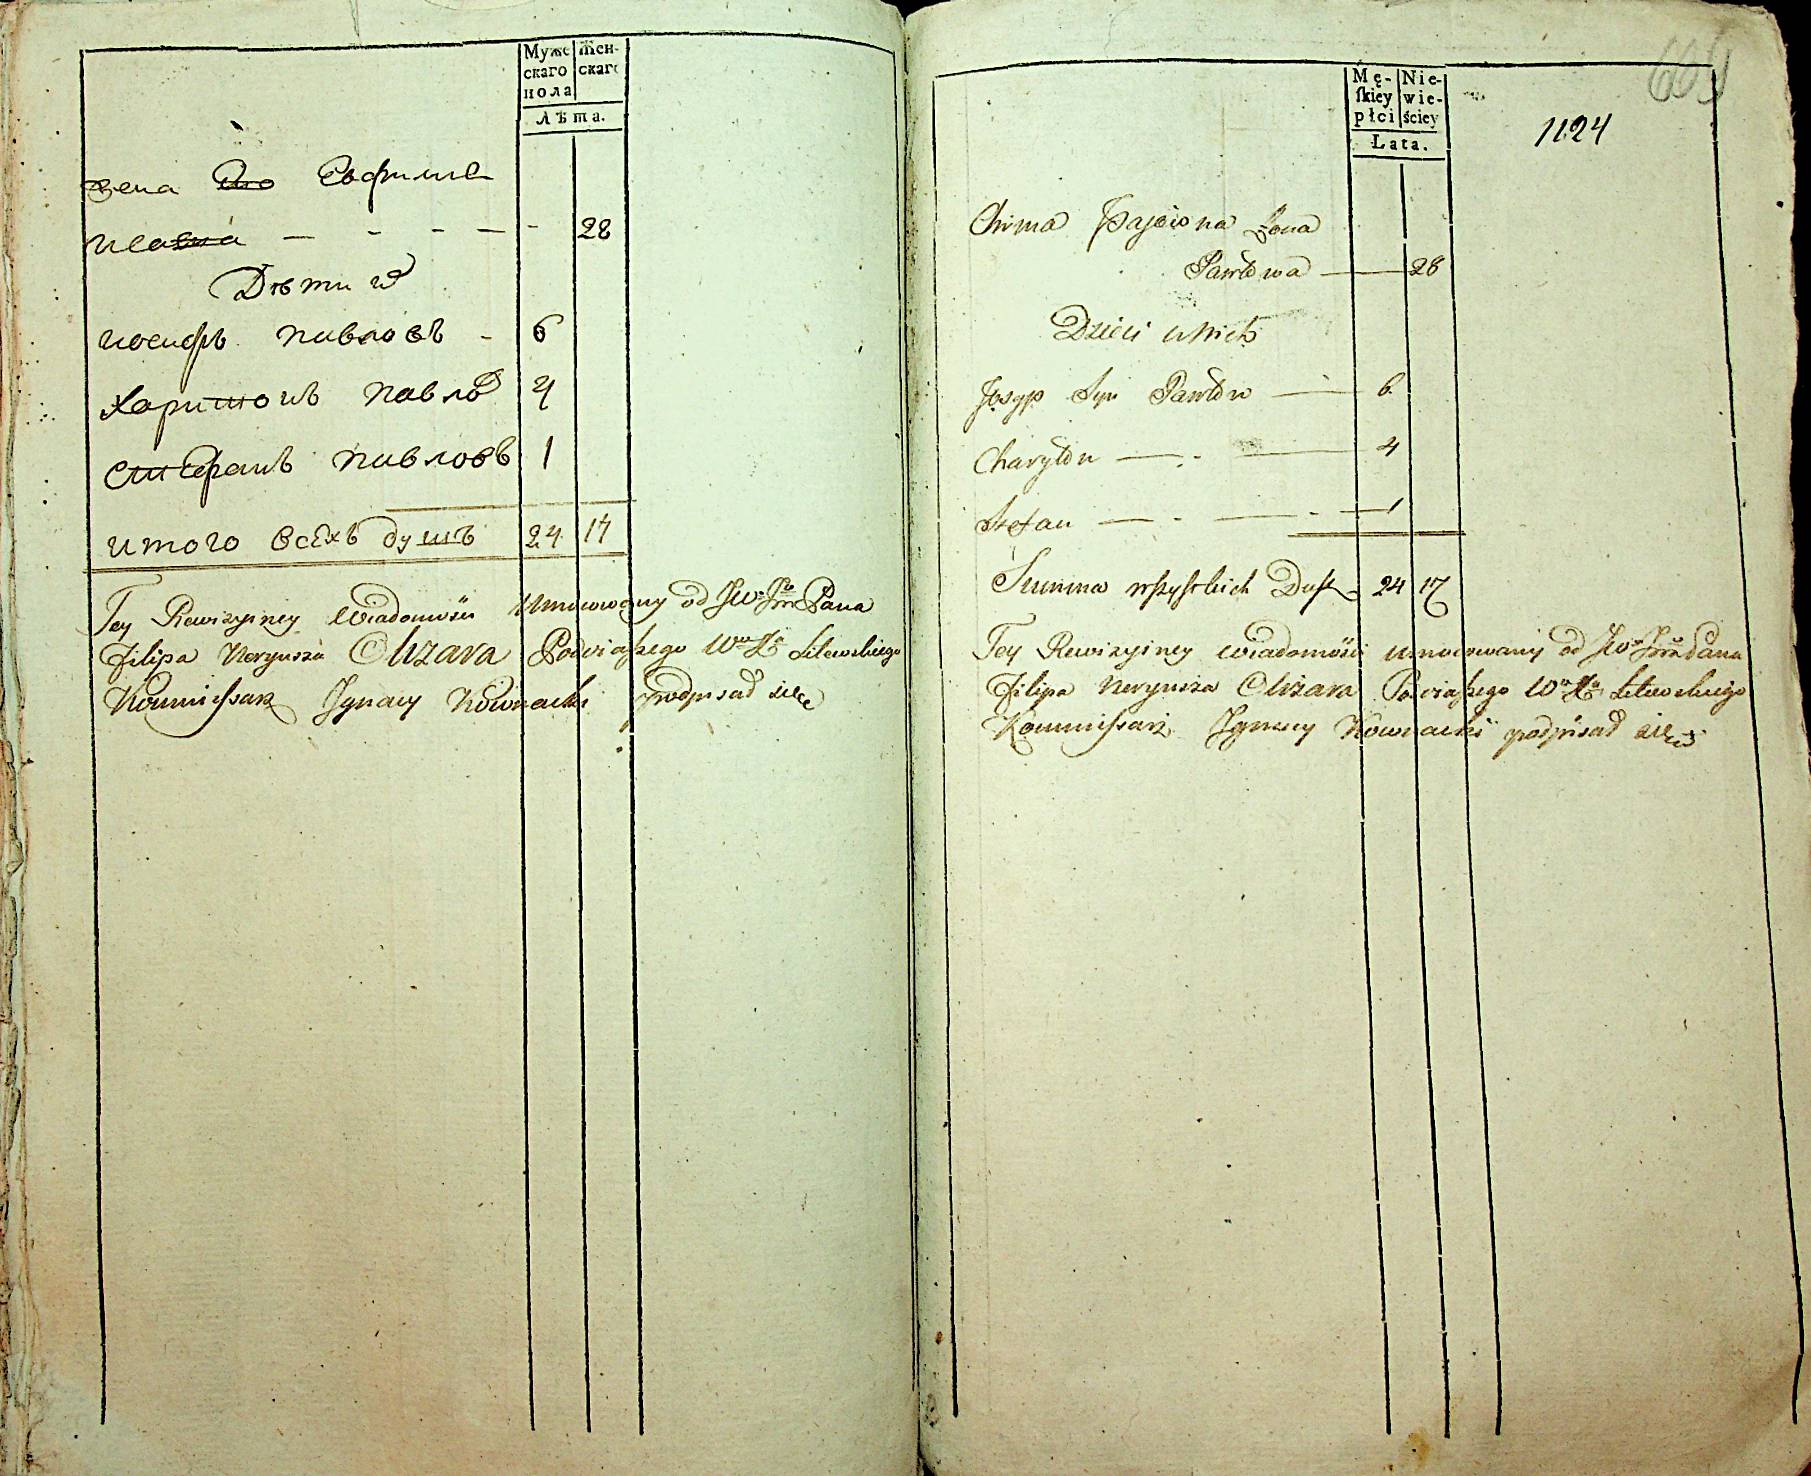 Муже
скаго
пола
Жен-
скаго
Лѣта.
жена Его Евфимиа
28
Дѣти их
иосифъ павловъ - 6
Харитонъ павлов 4
стефанъ павловъ 1
итого всѣхъ душъ 24 17
Tey Rewizyiney Wiadomości Umocowany od JWo Jm Pana
Filipa Neryusza Olizara Podczaszego Wo Xa Litewskiego
Kommissarz Ignacy Kownacki podpisał się
609
1124
Mę-
skiey
płci
Nie-
wie-
ściey
Lata.
żona
Pawłowa — 28
Dzieci u Nich
Josyp Syn Pawłow — 6
Charyton — 4
Stefan — 1
Summa wszystkich Dusz 24 17
Tey Rewizyiney Wiadomości umocowany od JWo Jm Pana
Filipa Neryusza Olizara Podczaszego Wo Xa Litewskiego
Kommissarz Ignacy Kownacki podpisał się